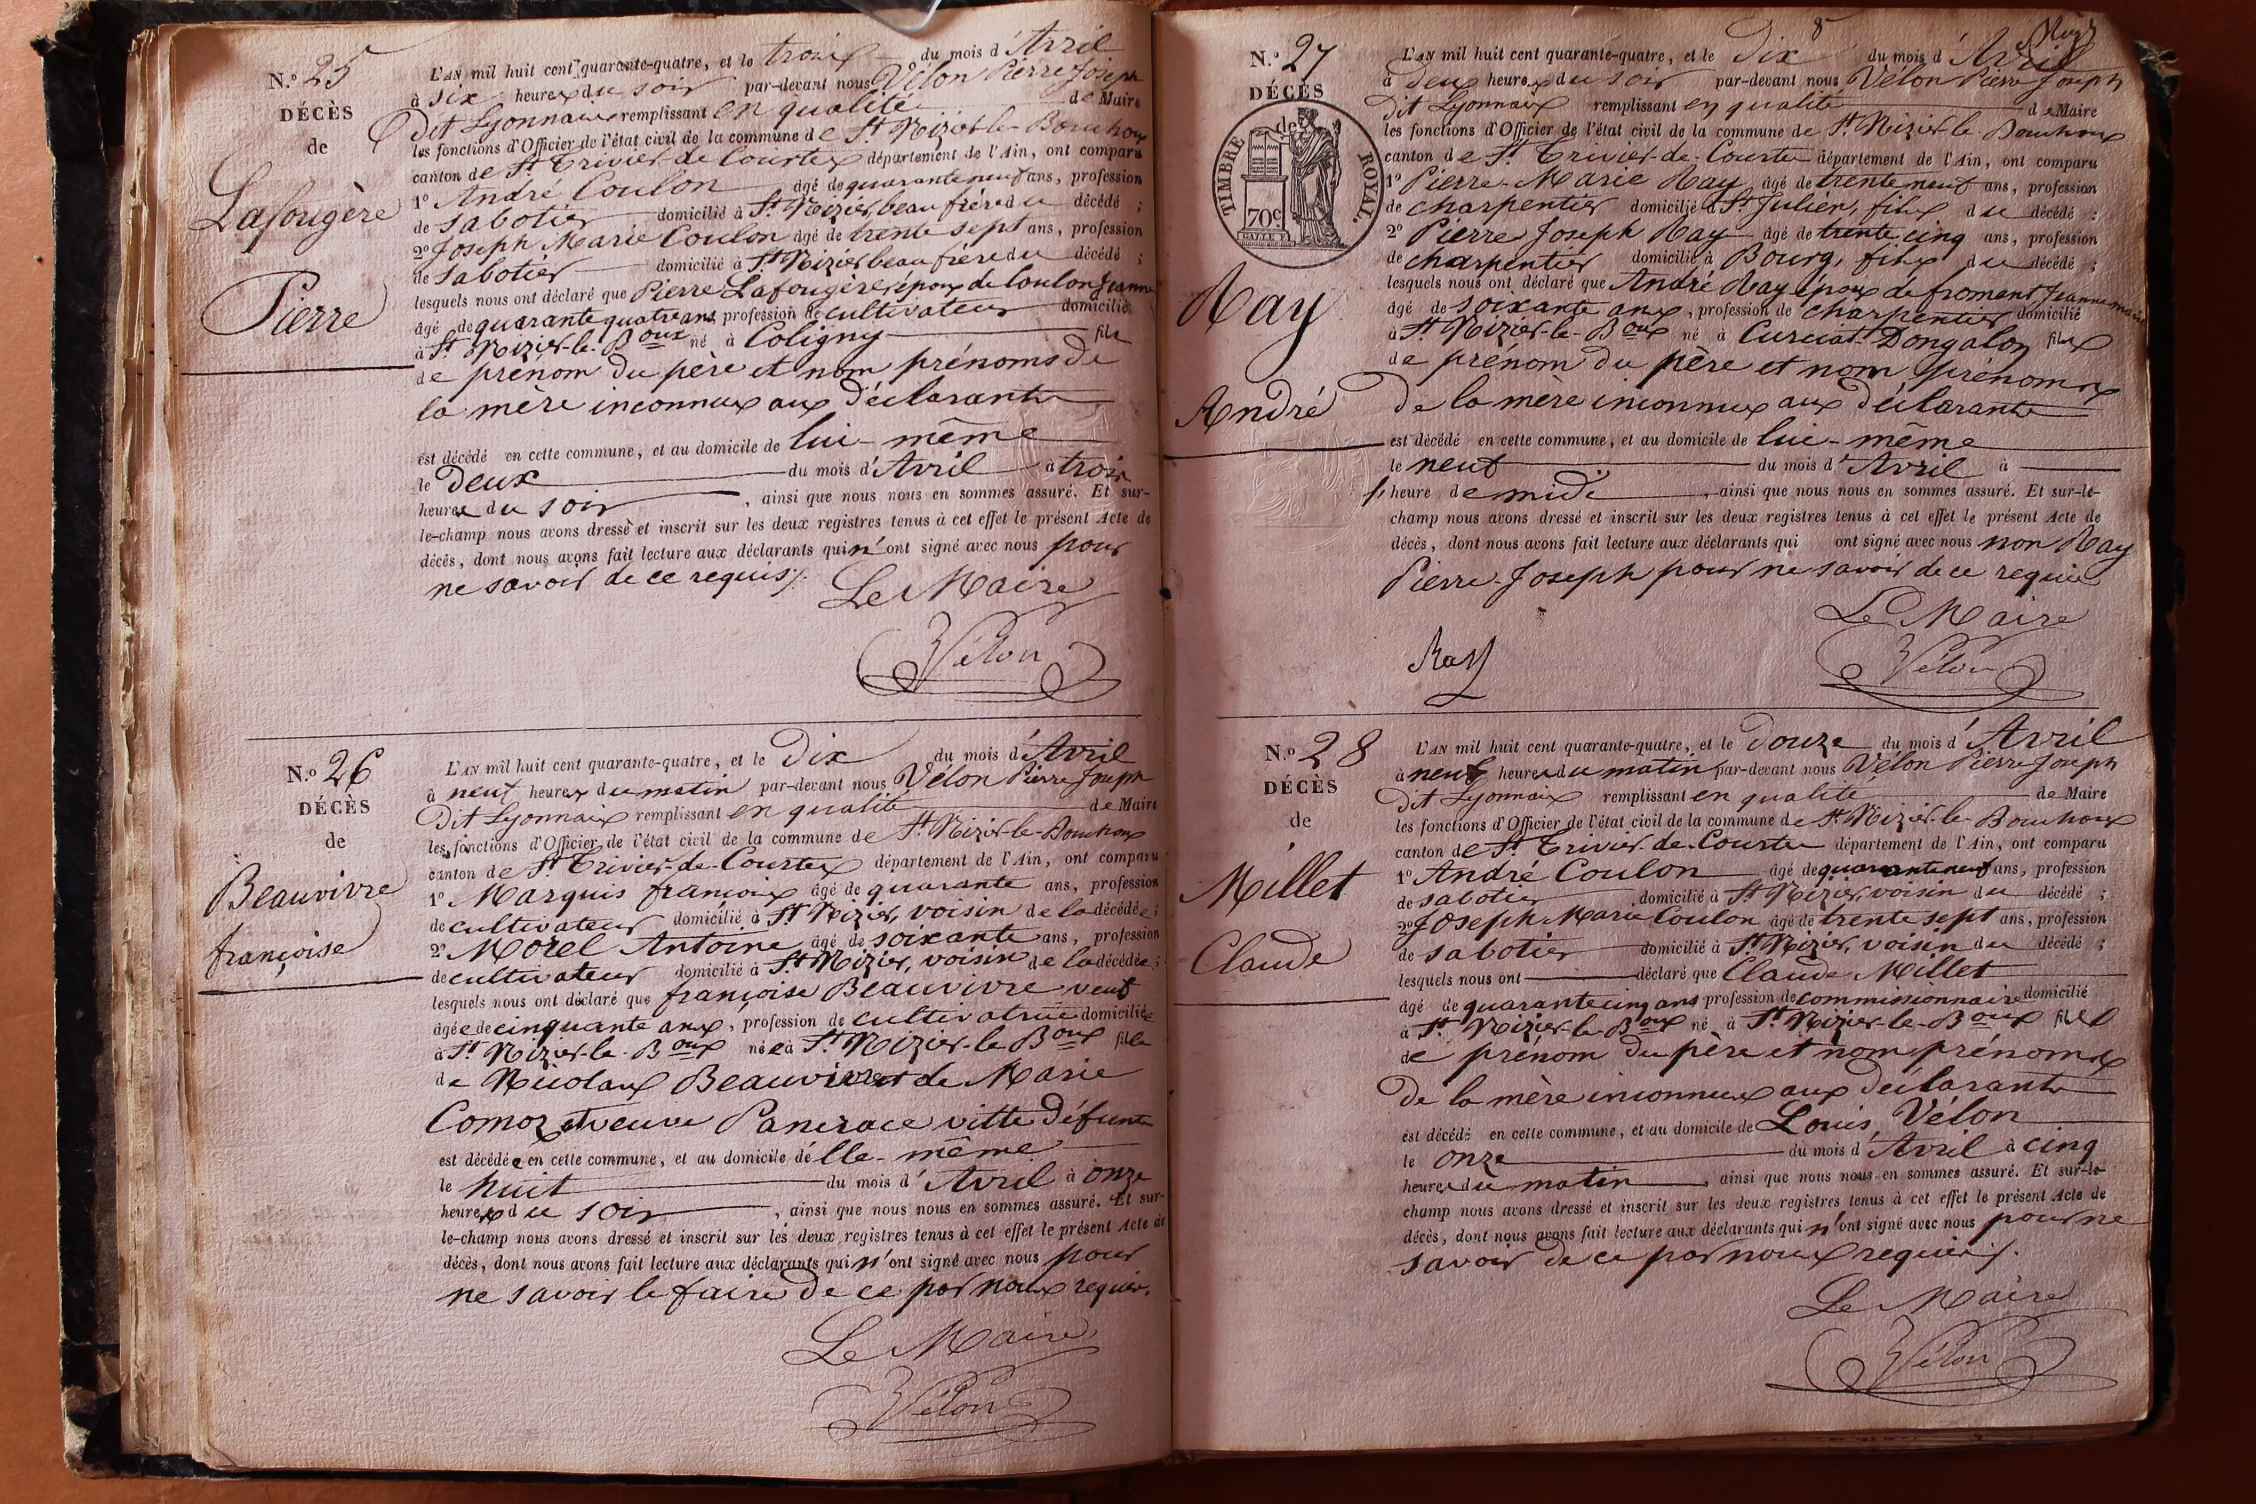 N.º 25
DÉCÈS
de
Lafougère
Pierre
L'AN mil huit cent quarante-quatre, et le trois du mois d'Avril
à six heures du soir par-devant nous Vélon Pierre Joseph
Dit Lyonnais remplissant en qualité de Maire
les fonctions d'Officier de l'état civil de la commune de St Nizier-le-Bouchoux
canton de St Trivier-de-Courtes département de l'Ain, ont comparu
1º André Coulon âgé de quarante neuf ans, profession
de sabotier domicilié à St Nizier beau frère du décédé ;
2º Joseph Marie Coulon âgé de trente sept ans, profession
de sabotier domicilié à St Nizier beau frère du décédé ;
lesquels nous ont déclaré que Pierre Lafougère époux de Coulon Jeanne
âgé de quarante quatre ans, profession de cultivateur domicilié
à St Nizier-le-Boux né à Coligny fils
de prénom du père et nom prénoms de
la mère inconnus aux déclarants
est décédé en cette commune, et au domicile de lui-même
le deux du mois d'Avril à trois
heures du soir, ainsi que nous nous en sommes assuré. Et sur-
le-champ nous avons dressé et inscrit sur les deux registres tenus à cet effet le présent Acte de
décès, dont nous avons fait lecture aux déclarants qui n'ont signé avec nous pour
ne savoir de ce requis /.
Le Maire
Vélon
N.º 26
DÉCÈS
de
Beauvivre
françoise
L'AN mil huit cent quarante-quatre, et le Dix du mois d'Avril
à neuf heures du matin par-devant nous Vélon Pierre Joseph
Dit Lyonnais remplissant en qualité de Maire
les fonctions d'Officier de l'état civil de la commune de St Nizier-le-Bouchoux
canton de St Trivier-de-Courtes département de l'Ain, ont comparu
1º Marquis françois âgé de quarante ans, profession
de cultivateur domicilié à St Nizier, voisin de la décédée ;
2º Morel Antoine âgé de soixante ans, profession
de cultivateur domicilié à St Nizier, voisin de la décédée ;
lesquels nous ont déclaré que françoise Beauvivre veuf
âgée de cinquante ans, profession de cultivatrice domiciliée
à St Nizier-le-Boux née à St Nizier-le-Boux fille
de Nicolas Beauvivre et de Marie
Comoz et veuve Pancrace vitte défunte
est décédée en cette commune, et au domicile d'elle-même
le huit du mois d'Avril à onze
heures du soir, ainsi que nous nous en sommes assuré. Et sur-
le-champ nous avons dressé et inscrit sur les deux registres tenus à cet effet le présent Acte de
décès, dont nous avons fait lecture aux déclarants qui n'ont signé avec nous pour
ne savoir le faire de ce par nous requis.
Le Maire
Vélon
8
N.º 27
DÉCÈS
de
TIMBRE ROYAL.
70c
Ray
André
L'AN mil huit cent quarante-quatre, et le Dix du mois d'Avril
à deux heures du soir par-devant nous Vélon Pierre Joseph
Dit Lyonnais remplissant en qualité de Maire
les fonctions d'Officier de l'état civil de la commune de St Nizier-le-Bouchoux
canton de St Trivier-de-Courtes département de l'Ain, ont comparu
1º Pierre-Marie Ray âgé de trente neuf ans, profession
de charpentier domicilié à St Julien, fils du décédé ;
2º Pierre Joseph Ray âgé de trente cinq ans, profession
de charpentier domicilié à Bourg, fils du décédé ;
lesquels nous ont déclaré que André Ray époux de froment Jeanne marie
âgé de soixante ans, profession de charpentier domicilié
à St Nizier-le-Boux né à Curciat-Dongalon fils
de prénom du père et nom prénoms
de la mère inconnus aux déclarants
est décédé en cette commune, et au domicile de lui-même
le neuf du mois d'Avril à
l'heure de midi, ainsi que nous nous en sommes assuré. Et sur-le-
champ nous avons dressé et inscrit sur les deux registres tenus à cet effet le présent Acte de
décès, dont nous avons fait lecture aux déclarants qui ont signé avec nous non Ray
Pierre-Joseph pour ne savoir de ce requis
Le Maire
Ray
Vélon
N.º 28
DÉCÈS
de
Millet
Claude
L'AN mil huit cent quarante-quatre, et le Douze du mois d'Avril
à neuf heures du matin par-devant nous Vélon Pierre Joseph
Dit Lyonnais remplissant en qualité de Maire
les fonctions d'Officier de l'état civil de la commune de St Nizier-le-Bouchoux
canton de St Trivier-de-Courtes département de l'Ain, ont comparu
1º André Coulon âgé de quarante neuf ans, profession
de sabotier domicilié à St Nizier, voisin du décédé ;
2º Joseph Marie Coulon âgé de trente sept ans, profession
de sabotier domicilié à St Nizier, voisin du décédé ;
lesquels nous ont déclaré que Claude Millet
âgé de quarante cinq ans profession de commissionnaire domicilié
à St Nizier-le-Boux né à St Nizier-le-Boux fils
de prénom du père et nom prénoms
de la mère inconnus aux déclarants
est décédé en cette commune, et au domicile de Louis Vélon
le onze du mois d'Avril à cinq
heures du matin, ainsi que nous nous en sommes assuré. Et sur-le-
champ nous avons dressé et inscrit sur les deux registres tenus à cet effet le présent Acte de
décès, dont nous avons fait lecture aux déclarants qui n'ont signé avec nous pour ne
savoir de ce par nous requis /.
Le Maire
Vélon